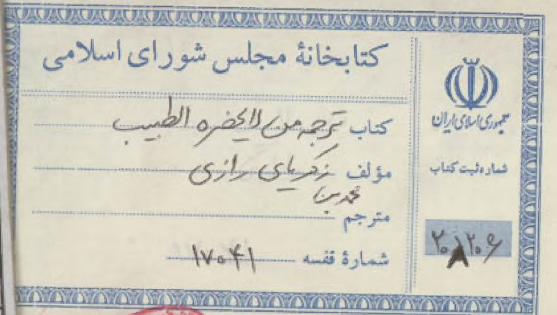 کتابخانهٔ مجلس شورای اسلامی
کتاب ترجمه من لایحضره الطبیب
مؤلف محمد بن زکریای رازی
مترجم
شمارهٔ قفسه ۱۷۰۴۱
جمهوری اسلامی ایران
شماره ثبت کتاب